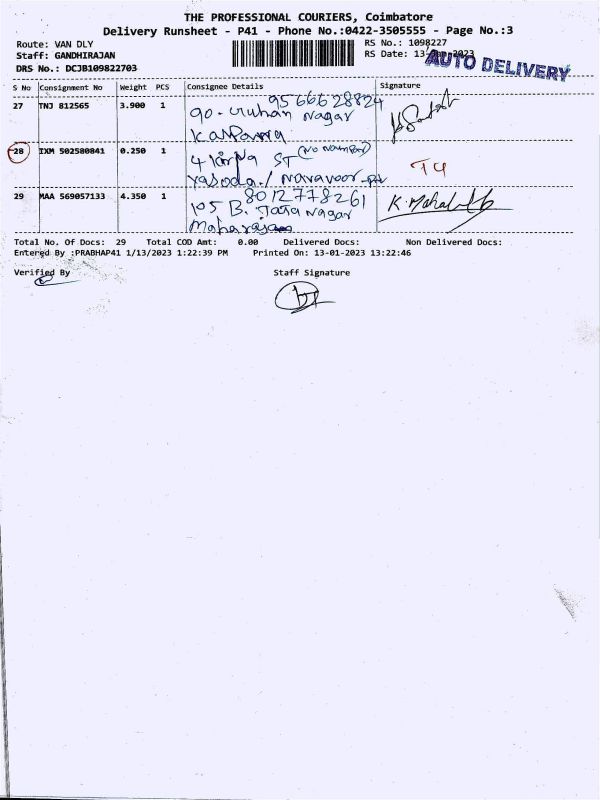 THE PROFESSIONAL COURIERS, Coimbatore
Delivery Runsheet - P41 - Phone No.:0422-3505555 - Page No.:3
Route: VAN DLY
Staff: GANDHIRAJAN
DRS No.: DCJB109822703
RS No.: 1098227
RS Date: 13-Jan-2023
AUTO DELIVERY
S No Consignment No Weight PCS Consignee Details Signature
27 TNJ 812565 3.900 1 9566628824
90- Nagar
Kalpana
28 IXM 502580841 0.250 1 ST T4
Yasoda /
29 MAA 569057133 4.350 1 8012778261 K. Mahal
105 B. Tata Nagar
Total No. Of Docs: 29 Total COD Amt: 0.00 Delivered Docs: Non Delivered Docs:
Entered By :PRABHAP41 1/13/2023 1:22:39 PM Printed On: 13-01-2023 13:22:46
Verified By Staff Signature